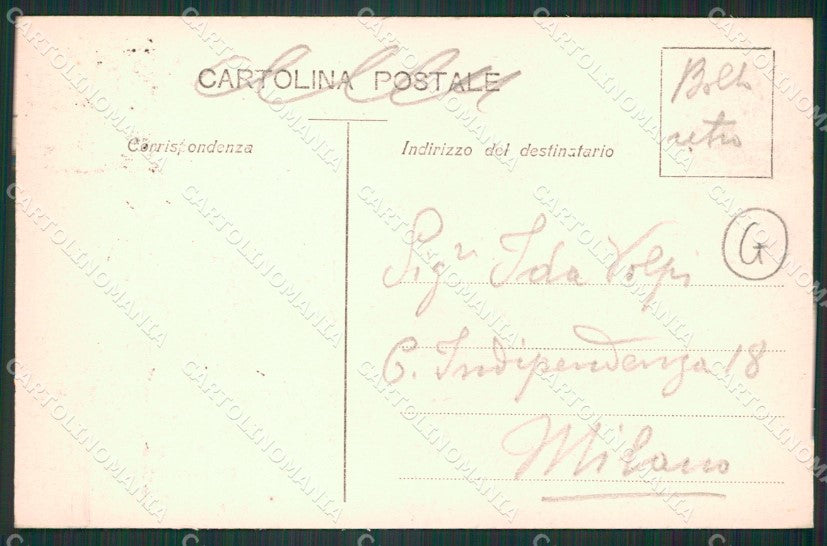 CARTOLINA POSTALE
Bollo
retro
Corrispondenza
Indirizzo del destinatario
G
Sigʳ Ida Volpi
C. Indipendenza 18
Milano
CARTOLINOMANIA